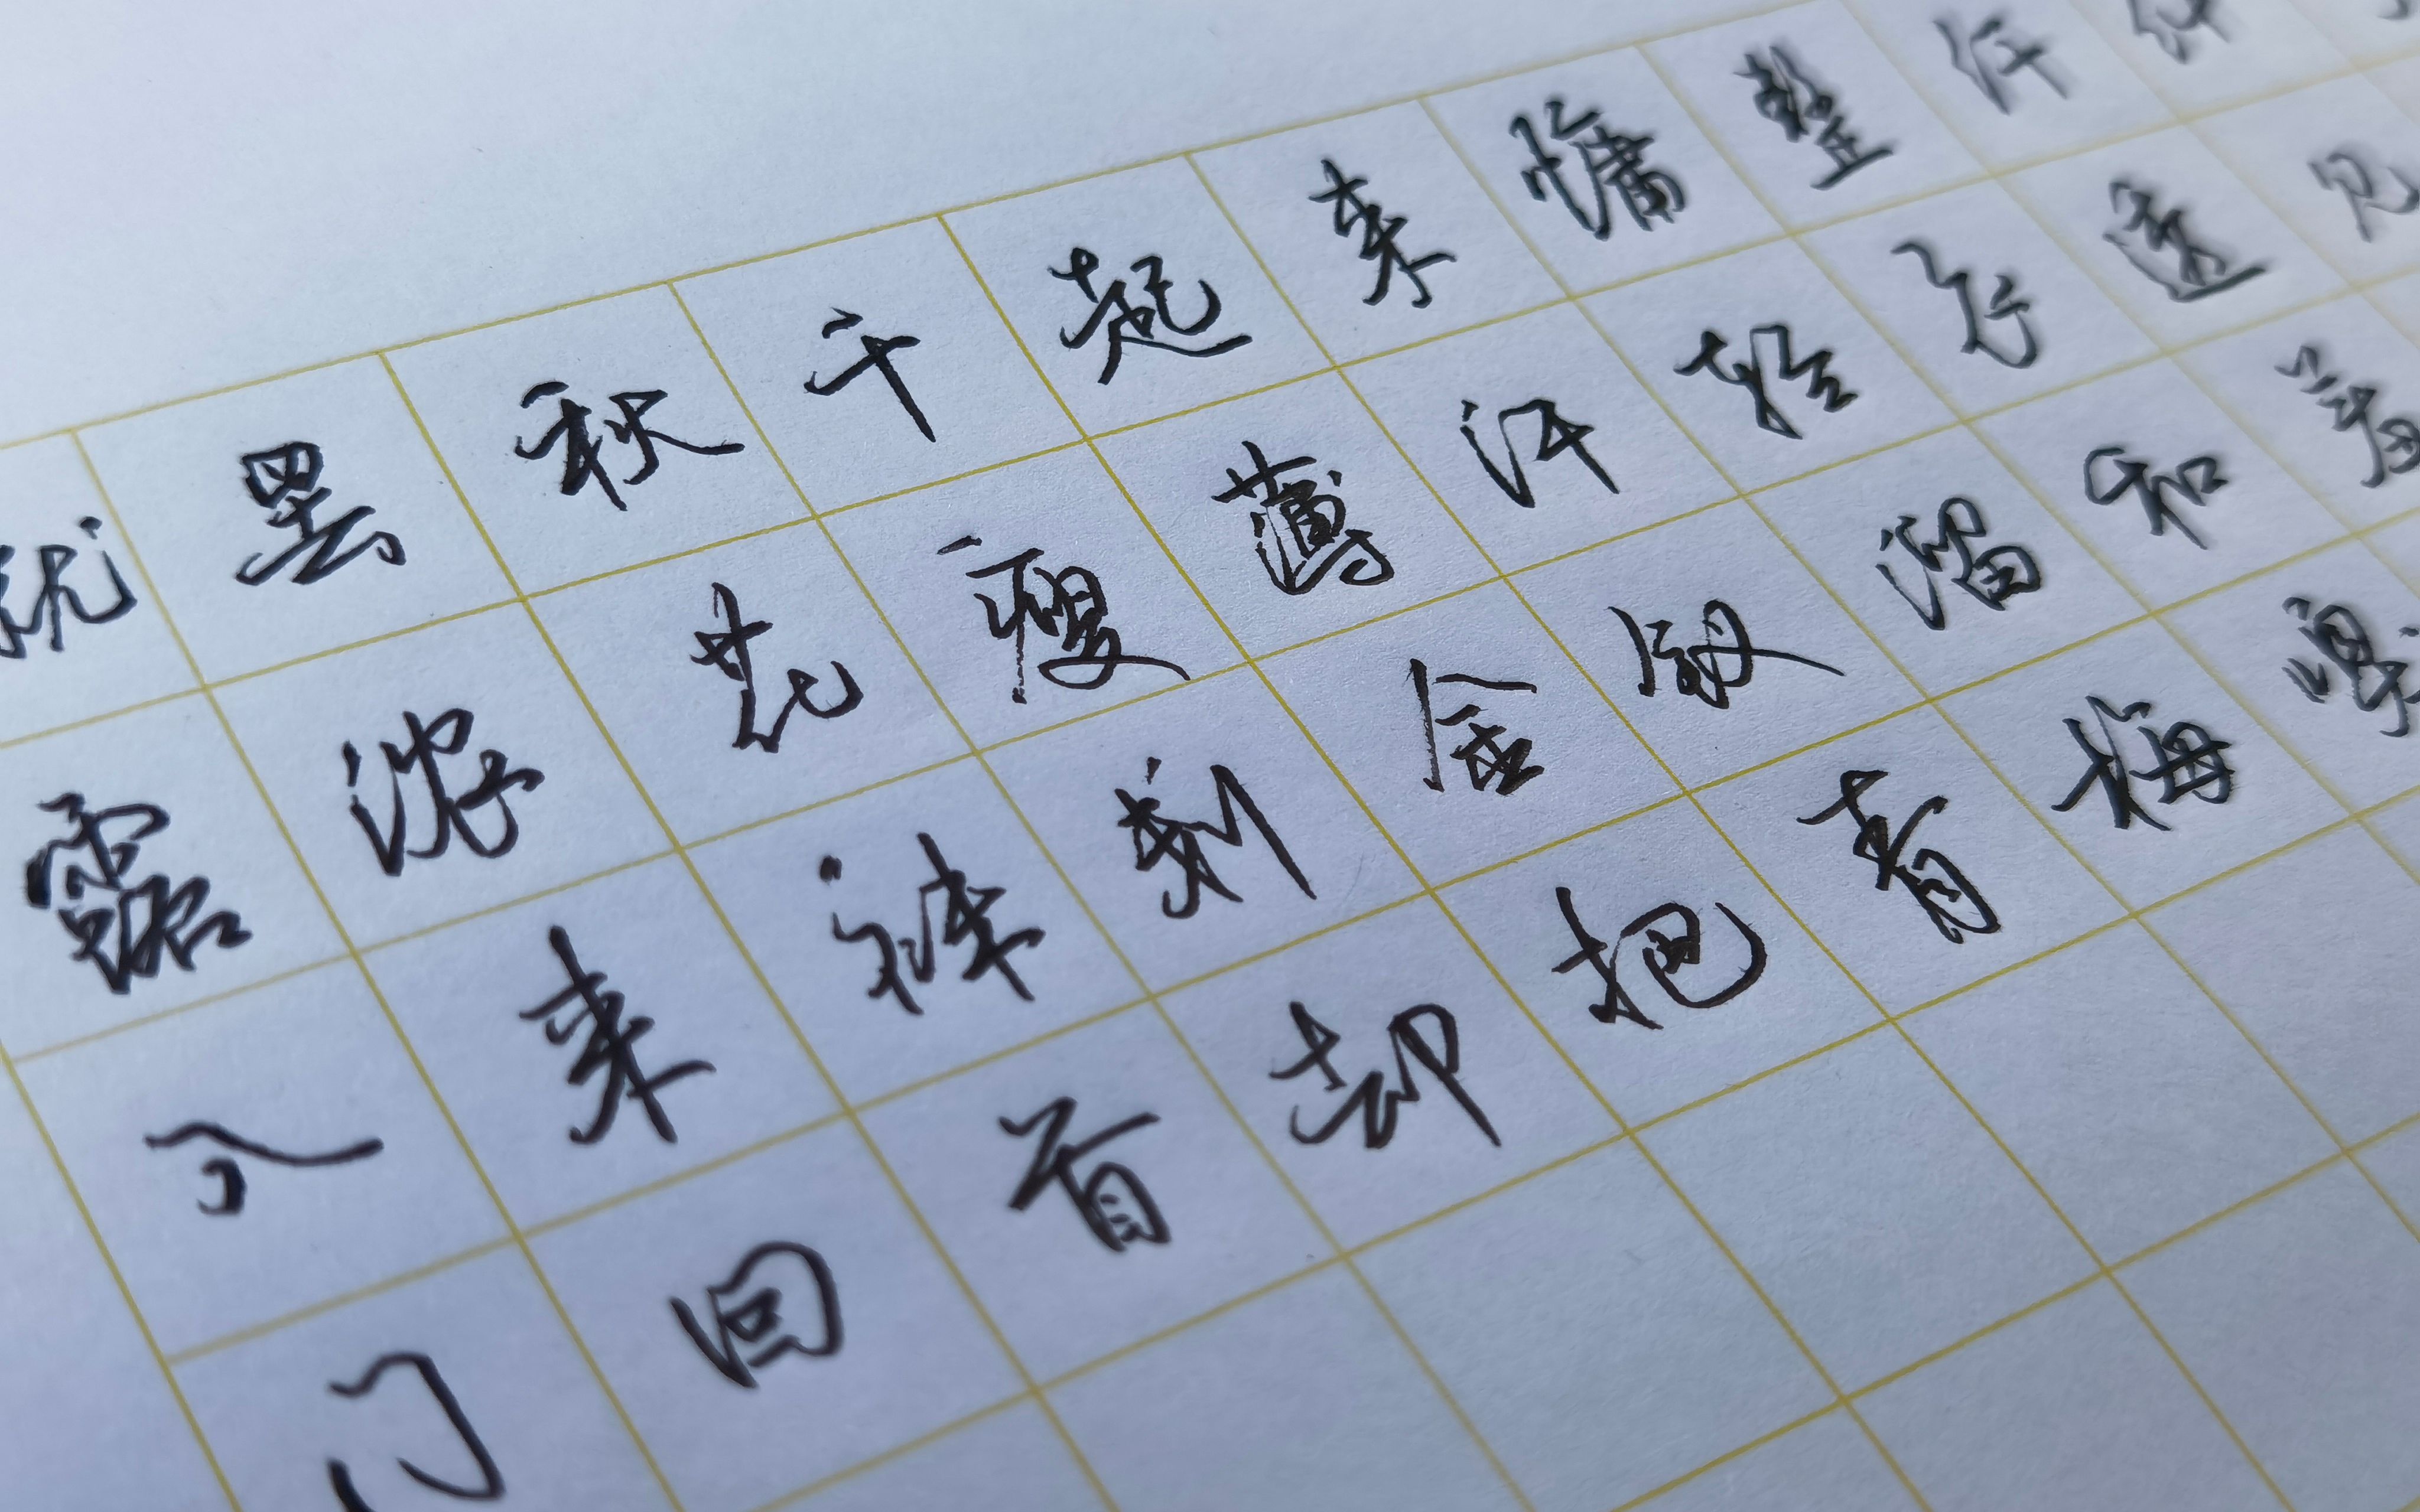 罢秋千起来慵整纤纤
露浓花瘦薄汗轻衣透见
入来袜刬金钗溜和羞
门回首却把青梅嗅